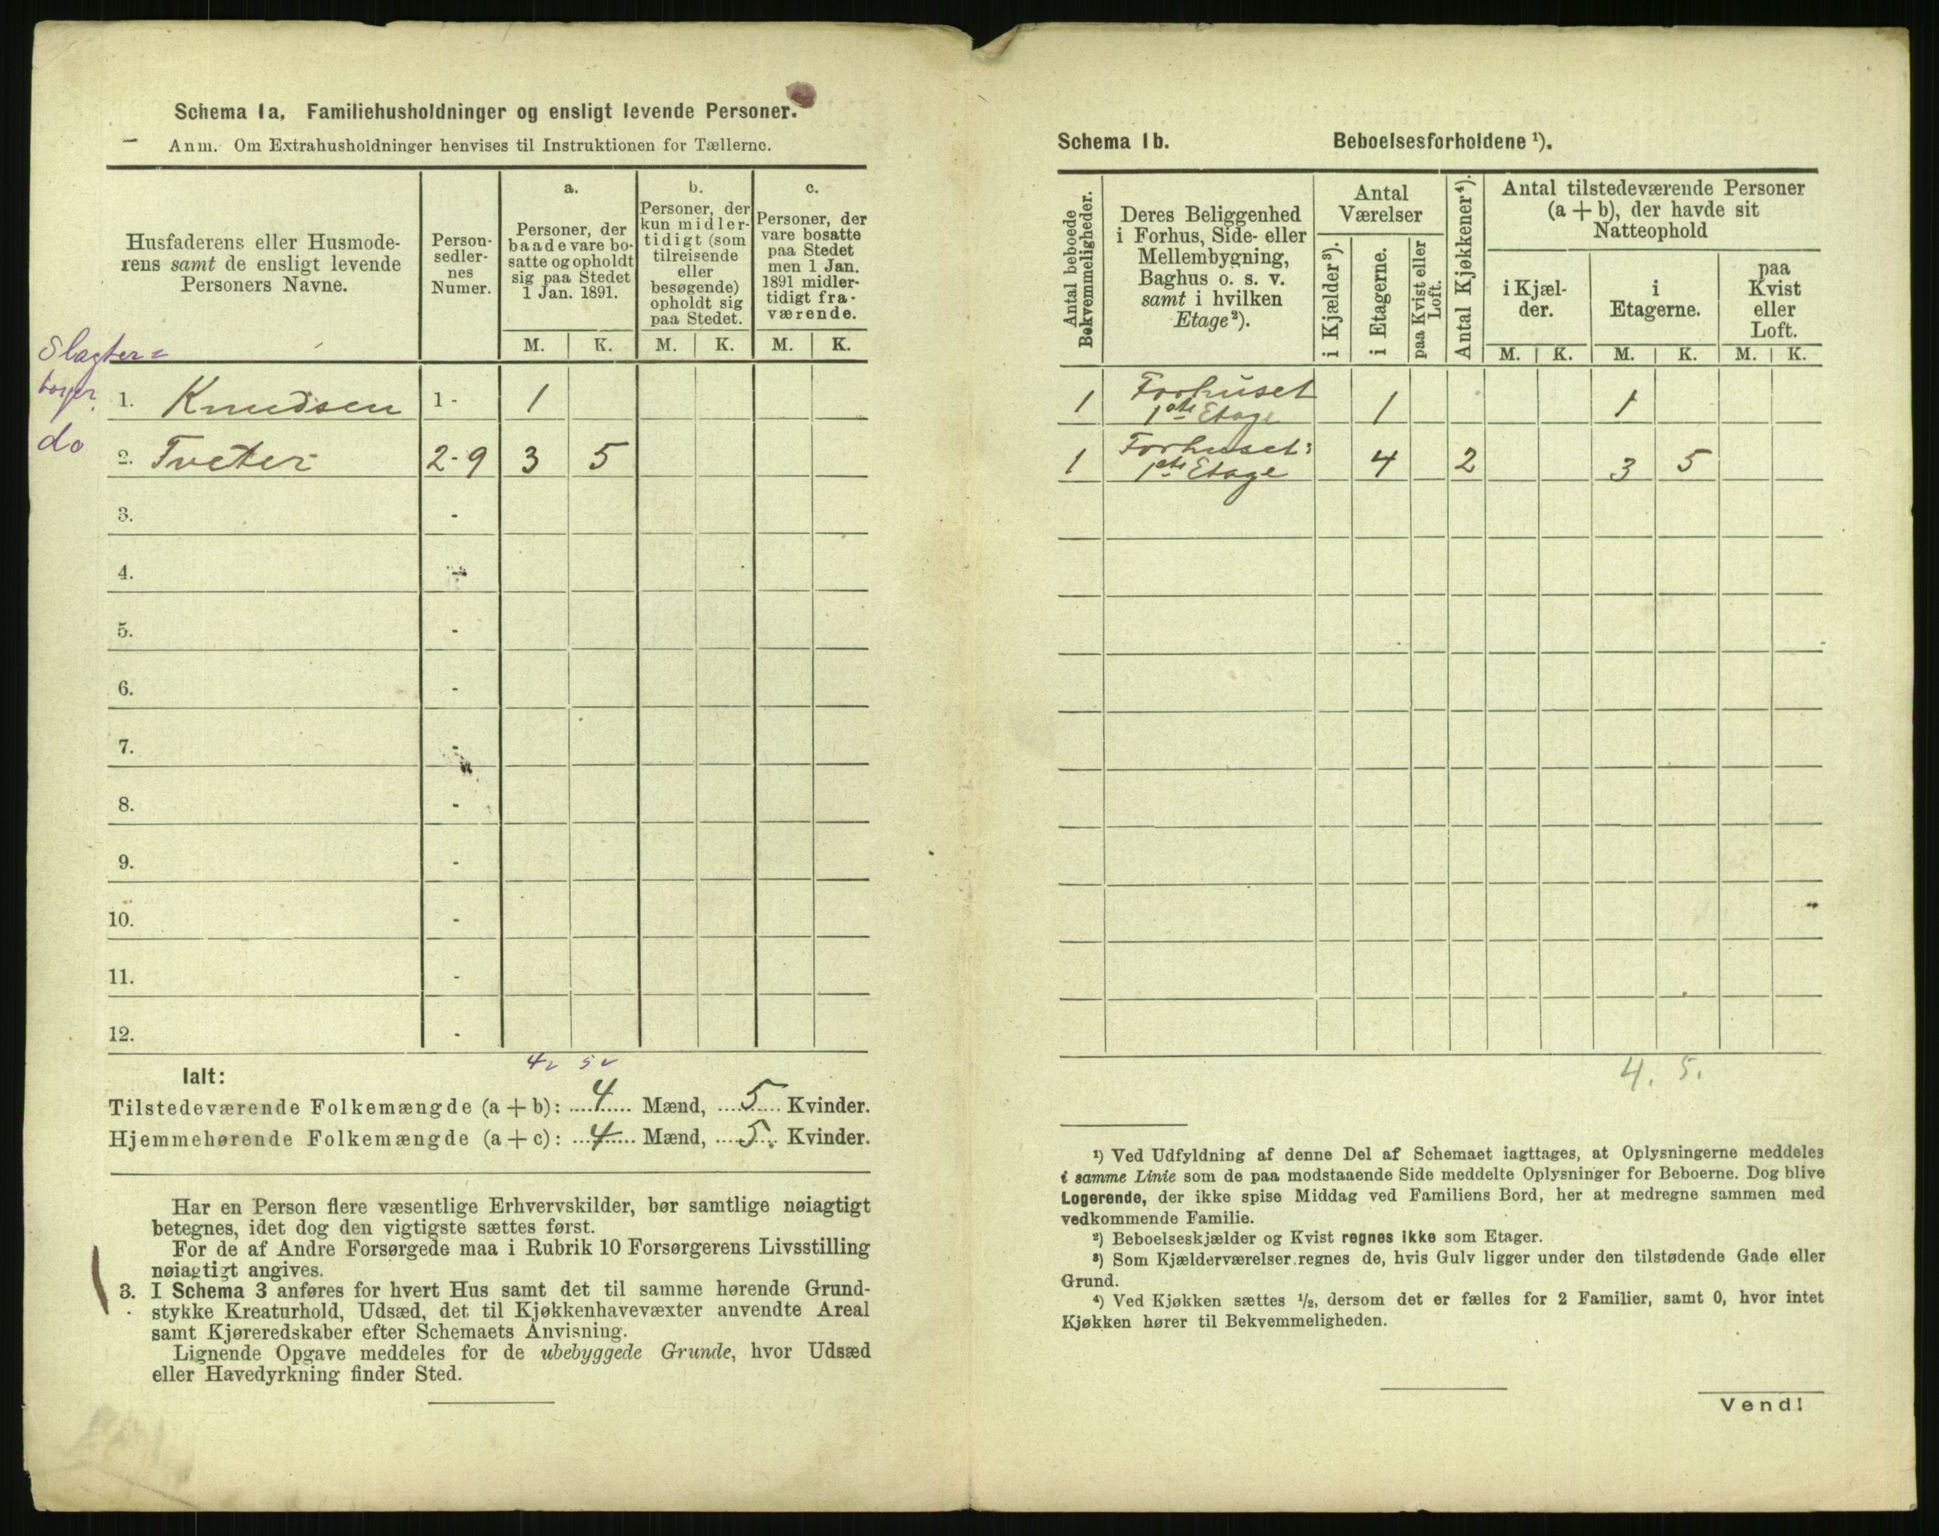 Schema 1a. Familiehusholdninger og ensligt levende Personer.
Anm. Om Extrahusholdninger henvises til Instruktionen for Tællerne.
Husfaderens eller Husmode-
rens samt de ensligt levende
Personers Navne.
Person-
sedler-
nes
Numer.
a.
Personer, der
baade vare bo-
satte og opholdt
sig paa Stedet
1 Jan. 1891.
b.
Personer, der
kun midler-
tidigt (som
tilreisende
eller
besøgende)
opholdt sig
paa Stedet.
c.
Personer, der
vare bosatte
paa Stedet
men 1 Jan.
1891 midler-
tidigt fra-
værende.
M. K. M. K. M. K.
Slagter=
1. Knudsen 1 - 1
do 2. Tveter 2-9 3 5
3. -
4. -
5. -
6. -
7. -
8. -
9. -
10. -
11. -
12. -
4 5
Ialt:
Tilstedeværende Folkemængde (a + b): 4 Mænd, 5 Kvinder.
Hjemmehørende Folkemængde (a + c): 4 Mænd, 5 Kvinder.
Har en Person flere væsentlige Erhvervskilder, bør samtlige nøiagtigt
betegnes, idet dog den vigtigste sættes først.
For de af Andre Forsørgede maa i Rubrik 10 Forsørgerens Livsstilling
nøiagtigt angives.
3. I Schema 3 anføres for hvert Hus samt det til samme hørende Grund-
stykke Kreaturhold, Udsæd, det til Kjøkkenhavevæxter anvendte Areal
samt Kjøreredskaber efter Schemaets Anvisning.
Lignende Opgave meddeles for de ubebyggede Grunde, hvor Udsæd
eller Havedyrkning finder Sted.
Schema 1b. Beboelsesforholdene ¹).
Antal beboede
Bekvemmeligheder.
Deres Beliggenhed
i Forhus, Side- eller
Mellembygning,
Baghus o. s. v.
samt i hvilken
Etage²).
Antal
Værelser
i Kjælder³).
i Etagerne.
paa Kvist eller
Loft.
Antal Kjøkkener⁴).
Antal tilstedeværende Personer
(a + b), der havde sit
Natteophold
i Kjæl-
der.
i
Etagerne.
paa
Kvist
eller
Loft.
M. K. M. K. M. K.
1 Forhuset
1ste Etage 1 1
1 Forhuset:
1ste Etage 4 2 3 5
4. 5.
¹) Ved Udfyldning af denne Del af Schemaet iagttages, at Oplysningerne meddeles
i samme Linie som de paa modstaaende Side meddelte Oplysninger for Beboerne. Dog blive
Logerende, der ikke spise Middag ved Familiens Bord, her at medregne sammen med
vedkommende Familie.
²) Beboelseskjælder og Kvist regnes ikke som Etager.
³) Som Kjælderværelser regnes de, hvis Gulv ligger under den tilstødende Gade eller
Grund.
⁴) Ved Kjøkken sættes ½, dersom det er fælles for 2 Familier, samt 0, hvor intet
Kjøkken hører til Bekvemmeligheden.
Vend!